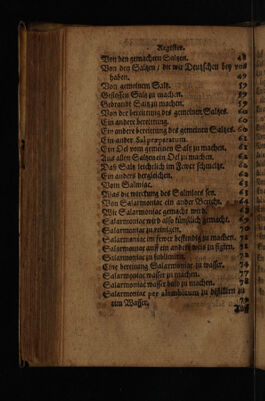 Register.
Von den gemachten Saltzen. 48
Von den Saltzen / die wir Deutschen bey uns
haben. 49
Von gemeinem Saltz. 59
Gestossen Saltz zu machen. 59
Gebrandt Saltz zu machen. 59
Von der bereitung des gemeinen Saltzes. 60
Ein andere bereitung. 60
Ein andere bereitung des gemeinen Saltzes. 60
Ein ander Sal præparatum. 61
Ein Oel vom gemeinen Saltz zu machen. 61
Aus allen Saltzen ein Oel zu machen. 62
Das Saltz leichtlich im Fewer schmeltzt. 62
Ein anders dergleichen. 62
Vom Salmiac. 62
Was die wirckung des Salmiacs sey. 62
Von Salarmoniac ein ander Bericht.
Wie Salarmoniac gemacht wird. 68
Salarmoniac wird also künstlich gemacht.
Salarmoniac zu reinigen. 70
Salarmoniac im fewer bestendig zu machen.
Salarmoniac auff ein anders weis zu figirn. 72
Salarmoniac zu sublimirn.
Eine bereitung Salarmoniac zu wasser. 74
Salarmoniac zu wasser zu machen. 77
Salarmoniac wasser bald zu machen. 78
Salarmoniac per alembicum zu distilliren zu
eim Wasser. 79